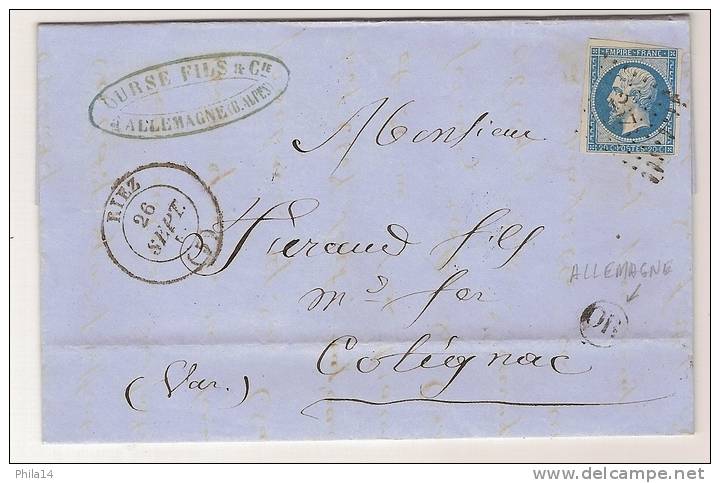 CURSE FILS & CIE
à ALLEMAGNE (B. ALPES)
EMPIRE FRANC
20 C POSTES 20 C
Monsieur
RIEZ
26
SEPT.
Féraud fils
ALLEMAGNE
md fer
OR
Cotignac
(Var.)
Phila14
www.delcampe.net